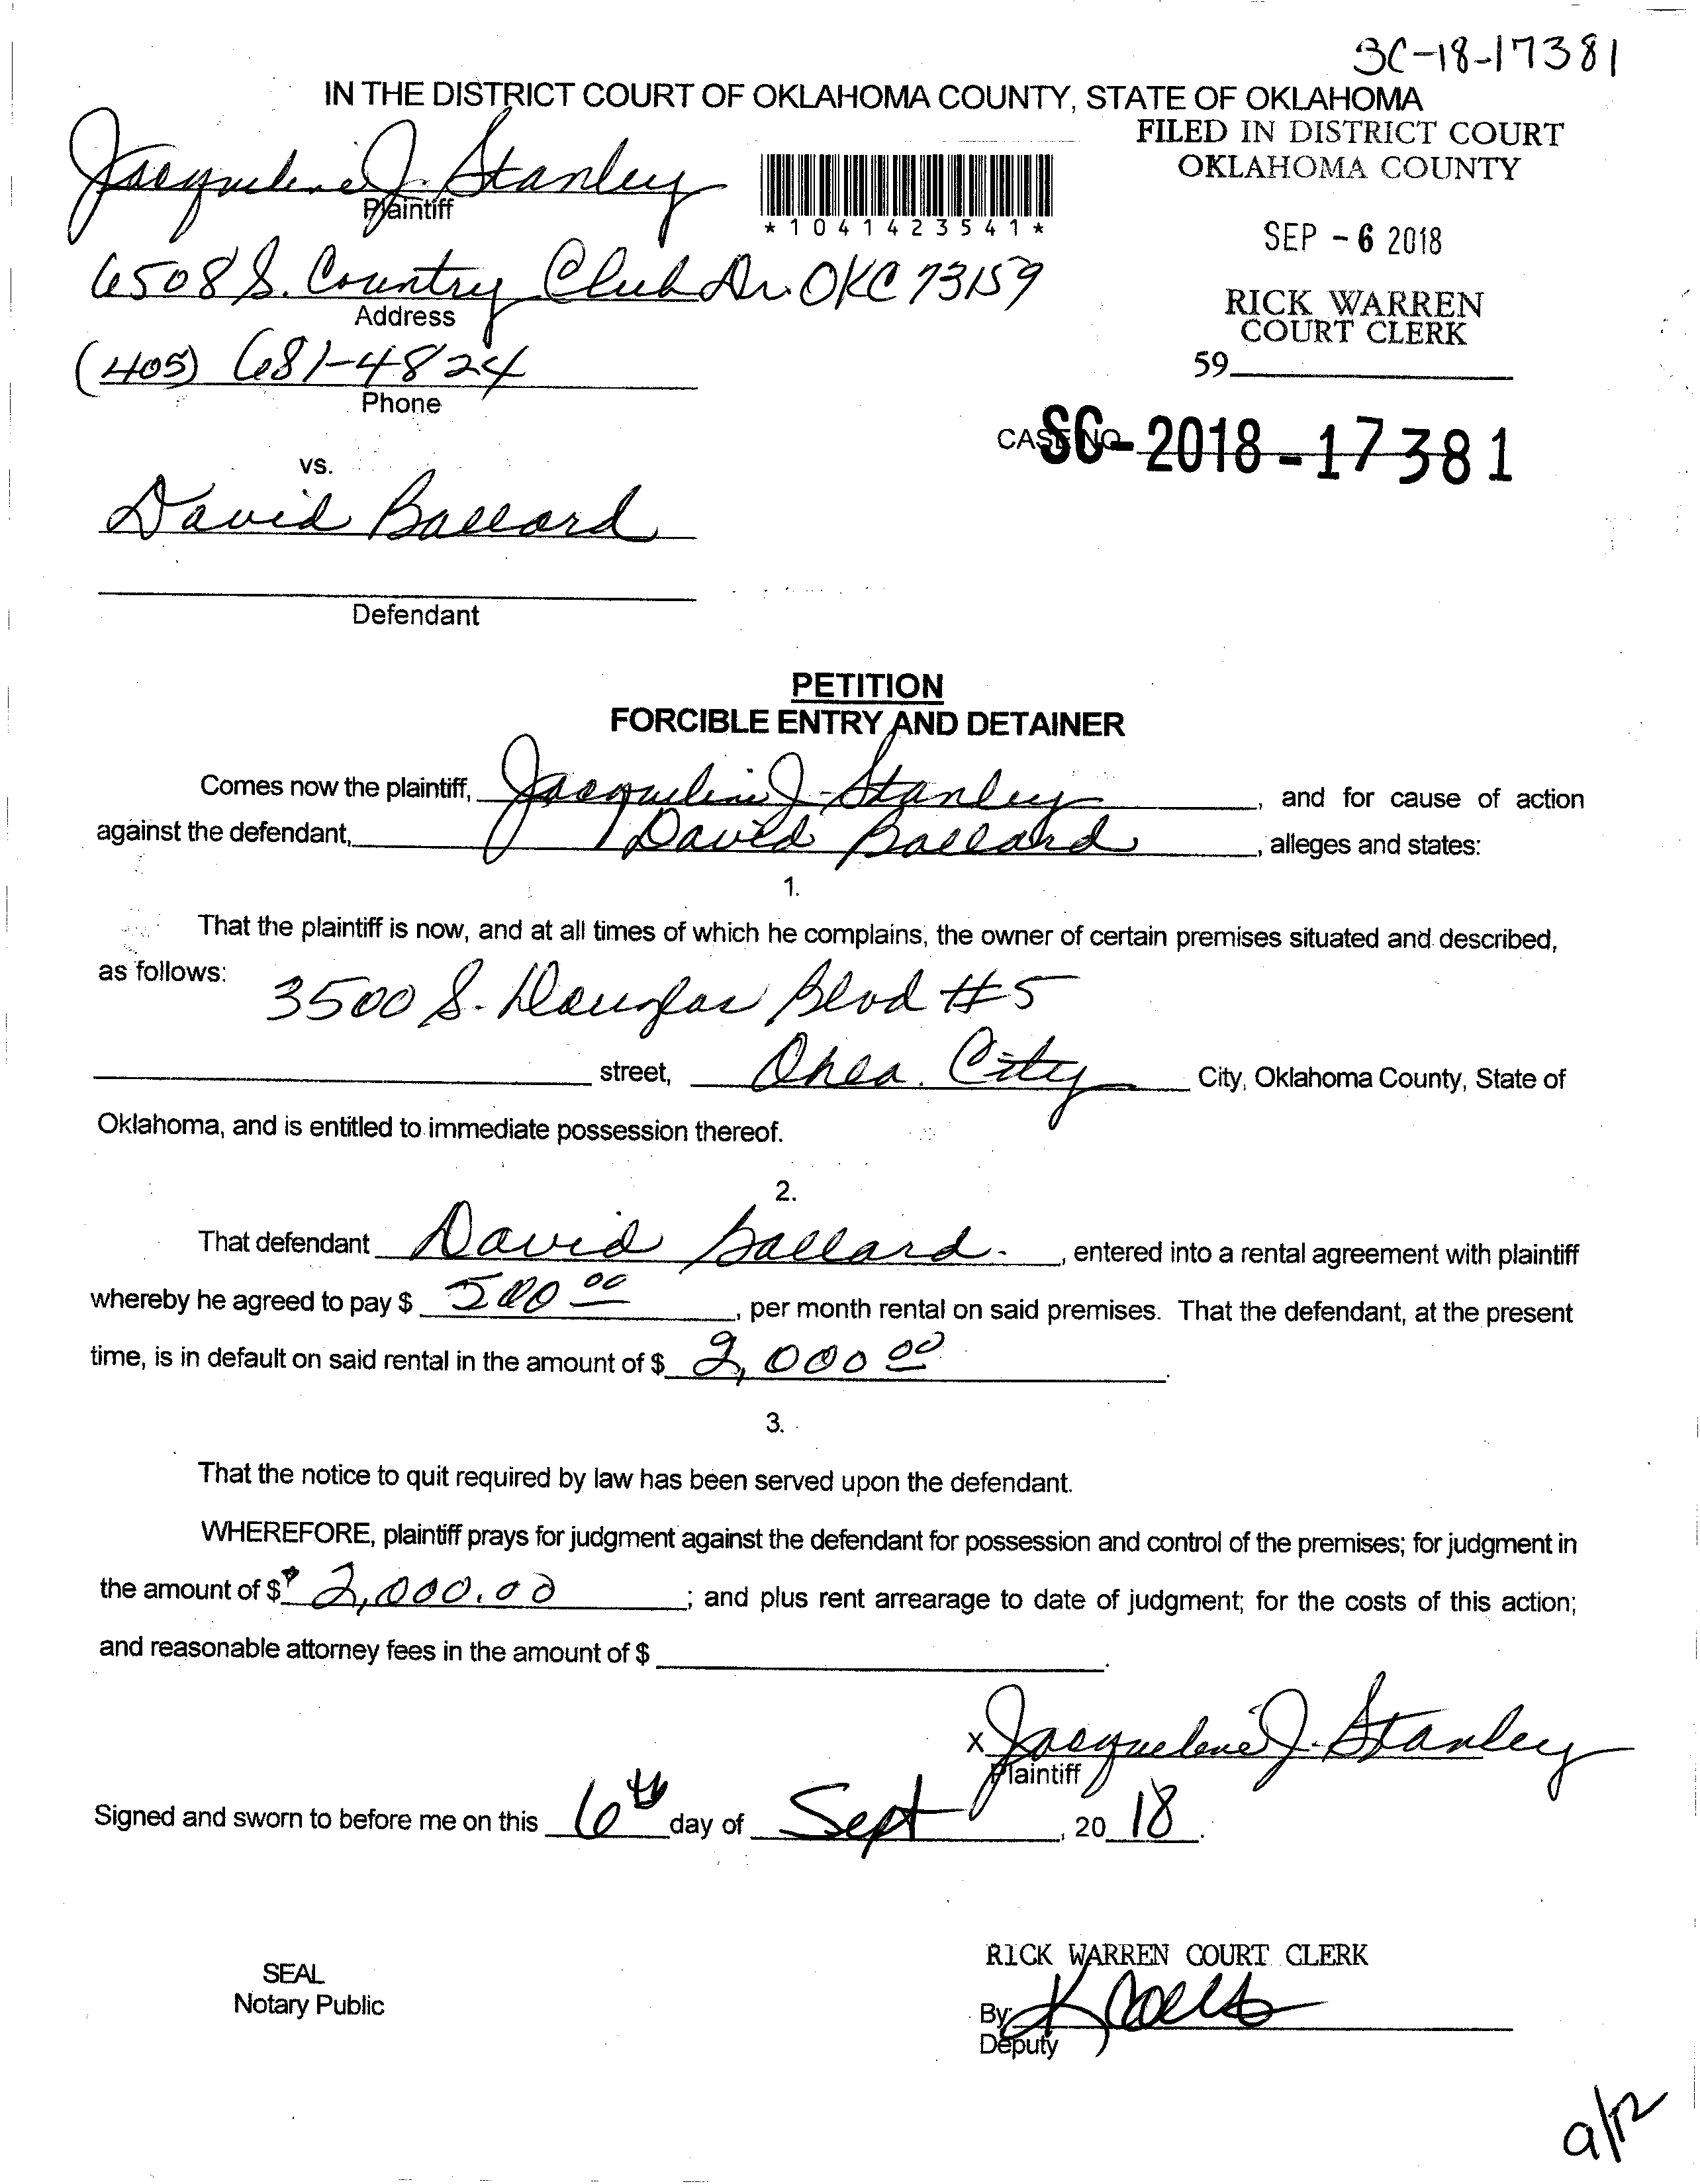 SC-18-17381
IN THE DISTRICT COURT OF OKLAHOMA COUNTY, STATE OF OKLAHOMA
FILED IN DISTRICT COURT
OKLAHOMA COUNTY
Jacqueline J. Stanley
Plaintiff
*1041423541*
SEP - 6 2018
6508 S. Country Club Dr. OKC 73159
Address
RICK WARREN
COURT CLERK
59
(405) 681-4824
Phone
CASE NO. SC-2018-17381
vs.
David Ballard
Defendant
PETITION
FORCIBLE ENTRY AND DETAINER
Comes now the plaintiff, Jacqueline J. Stanley, and for cause of action
against the defendant, David Ballard, alleges and states:
1.
That the plaintiff is now, and at all times of which he complains, the owner of certain premises situated and described,
as follows: 3500 S. Douglas Blvd #5
street, Okla. City City, Oklahoma County, State of
Oklahoma, and is entitled to immediate possession thereof.
2.
That defendant David Ballard., entered into a rental agreement with plaintiff
whereby he agreed to pay $ 500 00, per month rental on said premises. That the defendant, at the present
time, is in default on said rental in the amount of $ 2,000 00.
3.
That the notice to quit required by law has been served upon the defendant.
WHEREFORE, plaintiff prays for judgment against the defendant for possession and control of the premises; for judgment in
the amount of $ 2,000.00; and plus rent arrearage to date of judgment; for the costs of this action;
and reasonable attorney fees in the amount of $.
x Jacqueline J. Stanley
Plaintiff
Signed and sworn to before me on this 6th day of Sept, 20 18.
RICK WARREN COURT CLERK
SEAL
Notary Public
By: K
Deputy
9/12